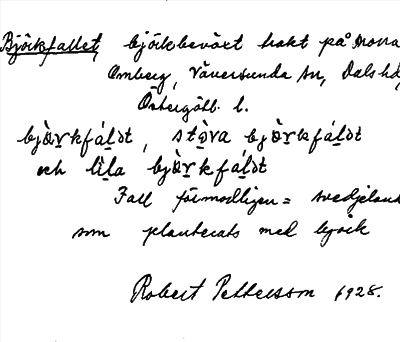 Björkfallet, björkbeväxt trakt på norra
Omberg, Väversunda sn, Dals hd,
Östergötl. l.
bjö̀r̲kfál̲dt, stö̀va bjö̀r̲kfál̲dt
och lìl̲a bjö̀r̲kfál̲dt
Fall förmodligen = svedjeland
som planterats med björk
Robert Pettersson 1928.